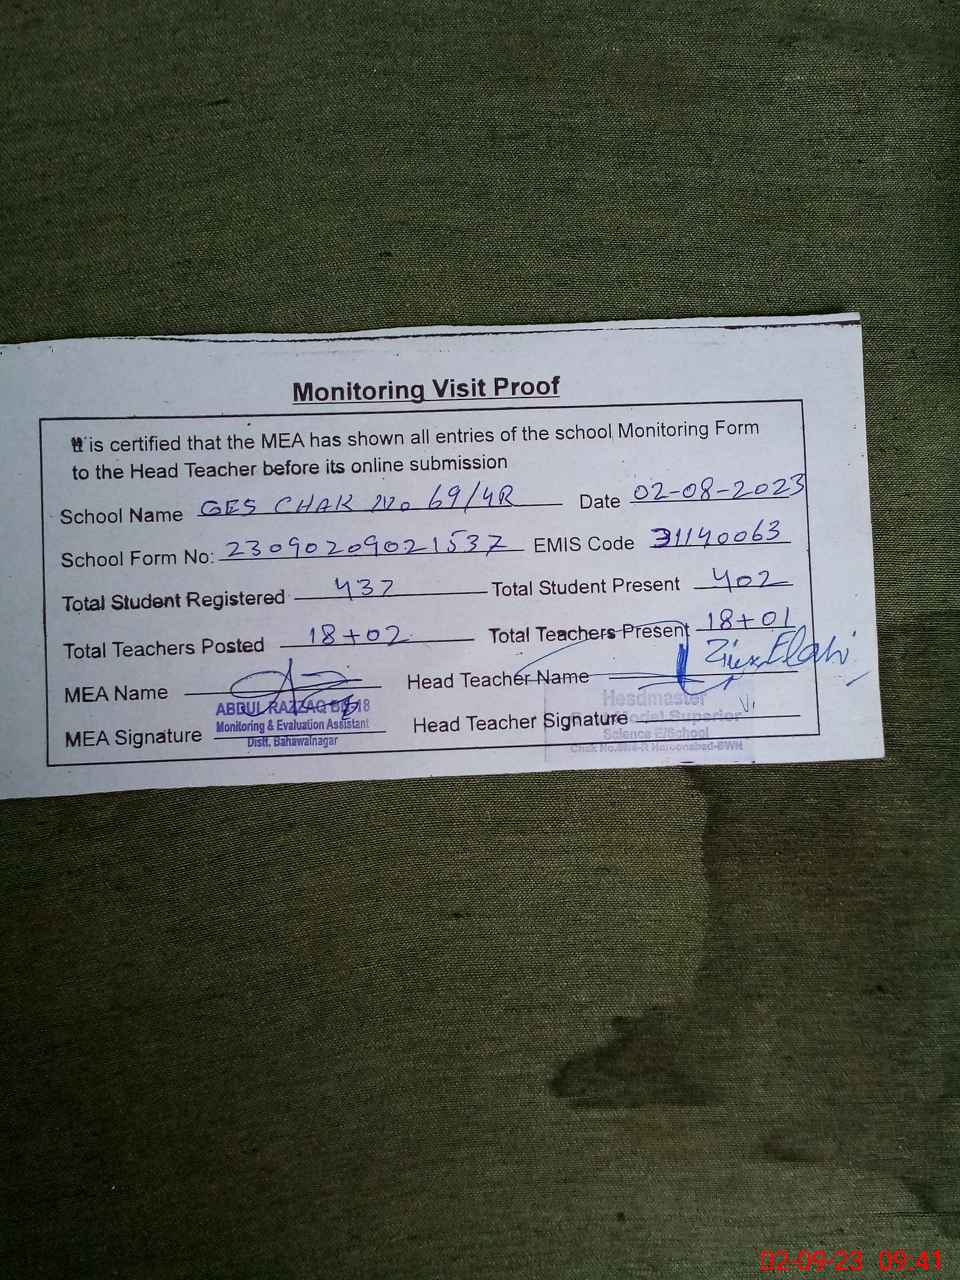 Monitoring Visit Proof
It is certified that the MEA has shown all entries of the school Monitoring Form
to the Head Teacher before its online submission
School Name GES CHAK No 69/4R Date 02-08-2023
School Form No: 23090209021537 EMIS Code 31140063
Total Student Registered 437 Total Student Present 402
Total Teachers Posted 18+02 Total Teachers Present 18+01
MEA Name Head Teacher Name Elahi
ABDUL RAZZAQ
Monitoring & Evaluation Assistant
Distt. Bahawalnagar
MEA Signature Head Teacher Signature
Headmaster
Model Superior
Science E/School
Chak No. Haroonabad-BWN
02-09-23 09:41